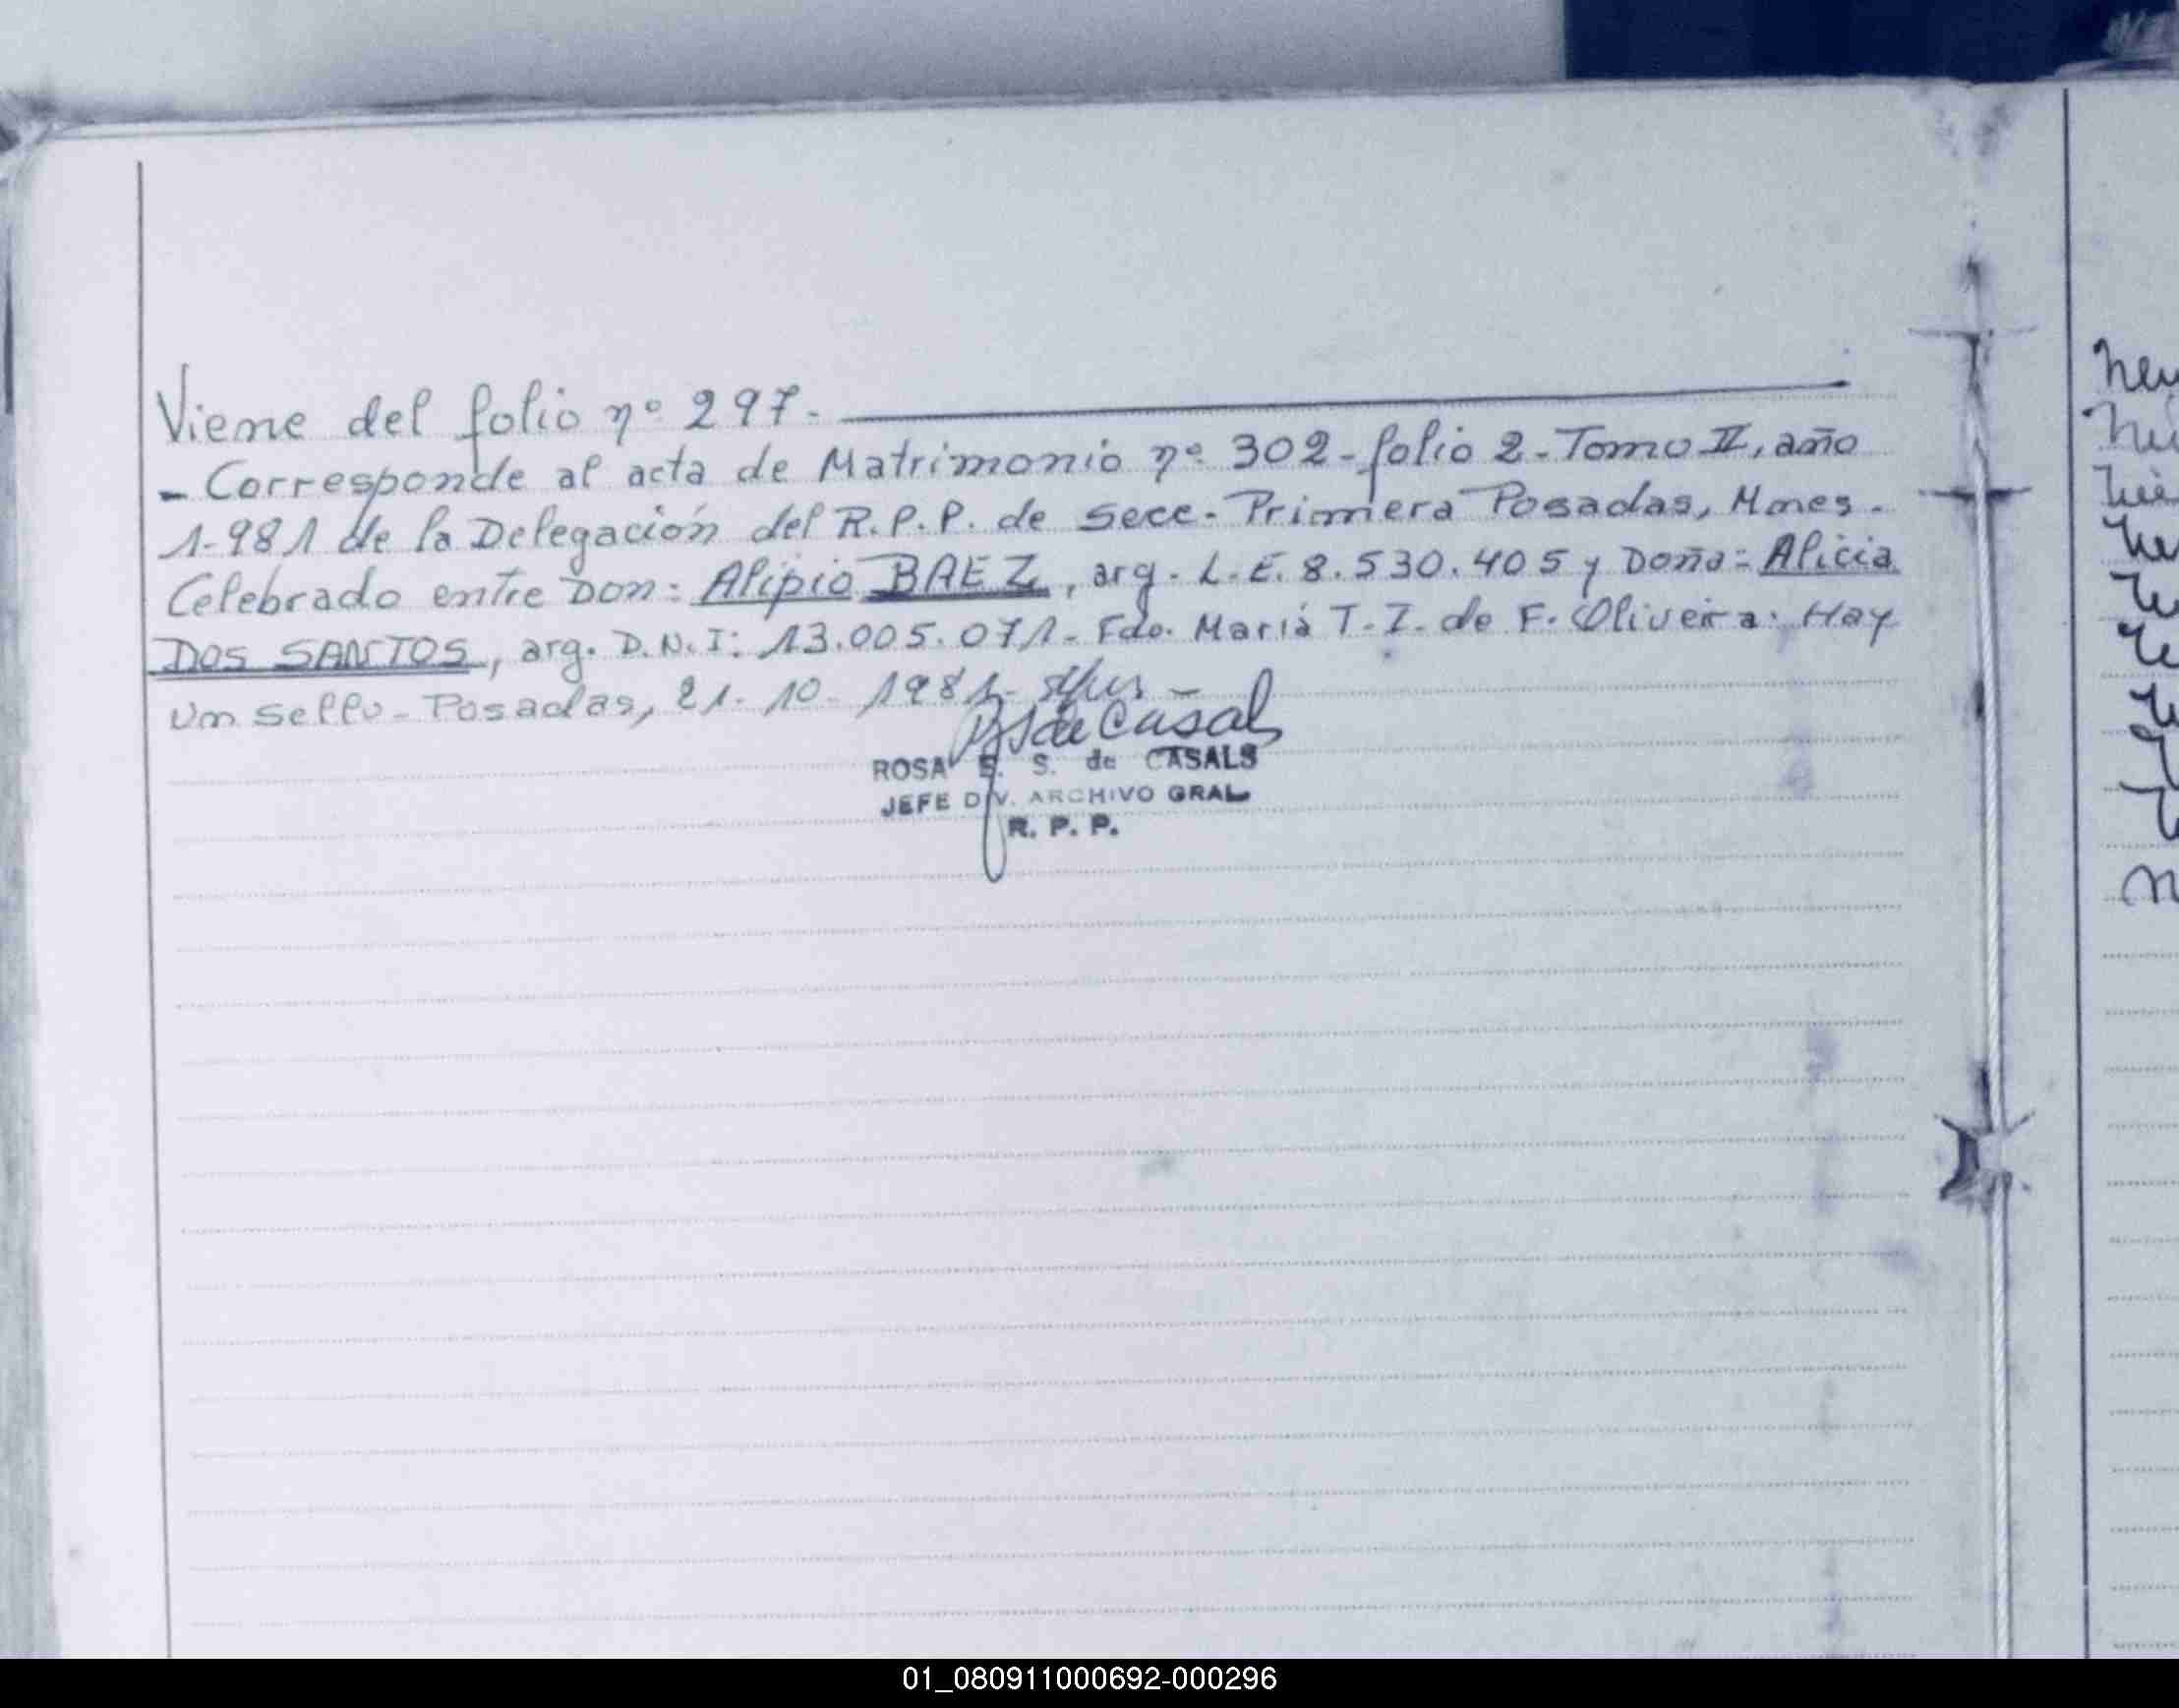 Viene del folio nº 297.-
- Corresponde al acta de Matrimonio nº 302-folio 2-Tomo II, año
1.981 de la Delegación del R.P.P. de Secc. Primera Posadas, Mnes.
Celebrado entre Don: Alipio BAEZ, arg. L.E. 8.530.405 y Doña: Alicia
DOS SANTOS, arg. D.N.I: 13.005.071- Fdo. Mariá T. I. de F. Oliveira. Hay
un sello- Posadas, 21-10-1981-
ROSA S. de CASALS
JEFE DIV. ARCHIVO GRAL
R. P. P.
01_080911000692-000296